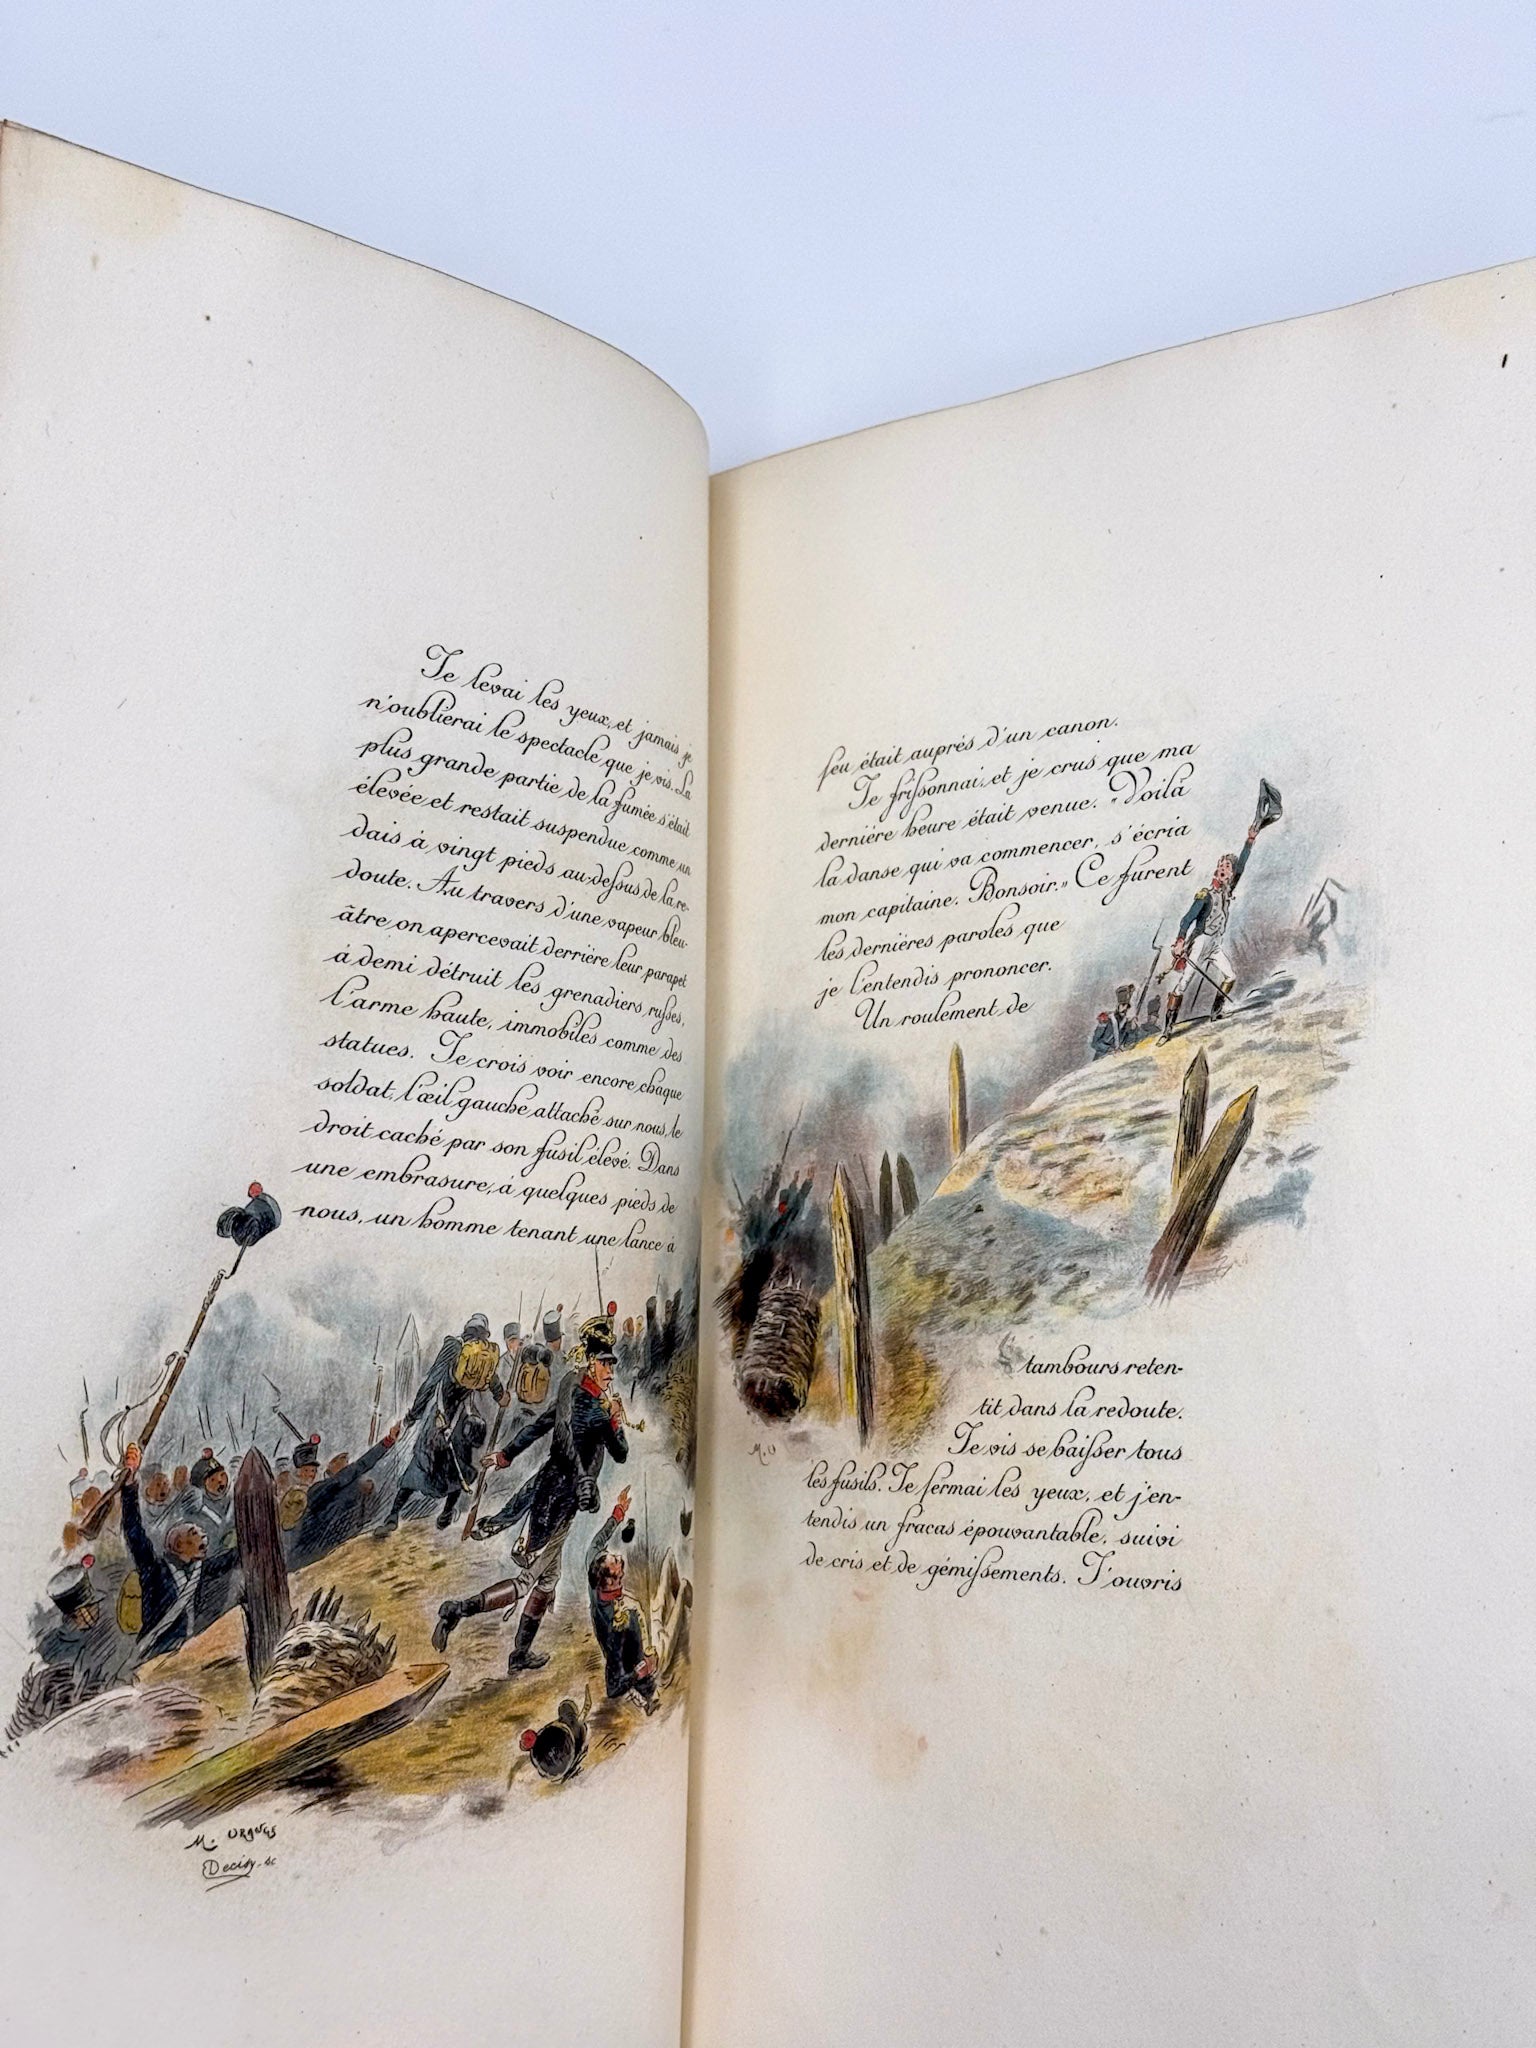 Je levai les yeux, et jamais je
n'oublierai le spectacle que je vis. La
plus grande partie de la fumée s'était
élevée et restait suspendue comme un
dais à vingt pieds au-dessus de la re-
doute. Au travers d'une vapeur bleu-
âtre on apercevait derrière leur parapet
à demi détruit les grenadiers russes,
l'arme haute, immobiles comme des
statues. Je crois voir encore chaque
soldat, l'œil gauche attaché sur nous, le
droit caché par son fusil élevé. Dans
une embrasure, à quelques pieds de
nous, un homme tenant une lance à
M. Orange
Decisy. sc
feu était auprés d'un canon.
Je frissonnai, et je crus que ma
derniére heure était venue. "Voilà
la danse qui va commencer, s'écria
mon capitaine. Bonsoir." Ce furent
les derniéres paroles que
je l'entendis prononcer.
Un roulement de
M. O
tambours reten-
tit dans la redoute.
Je vis se baisser tous
les fusils. Je fermai les yeux, et j'en-
tendis un fracas épouvantable, suivi
de cris et de gémissements. J'ouvris